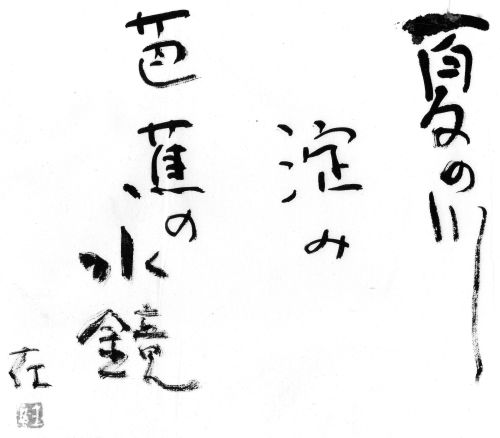 夏の川
淀み
芭蕉の
水鏡
在